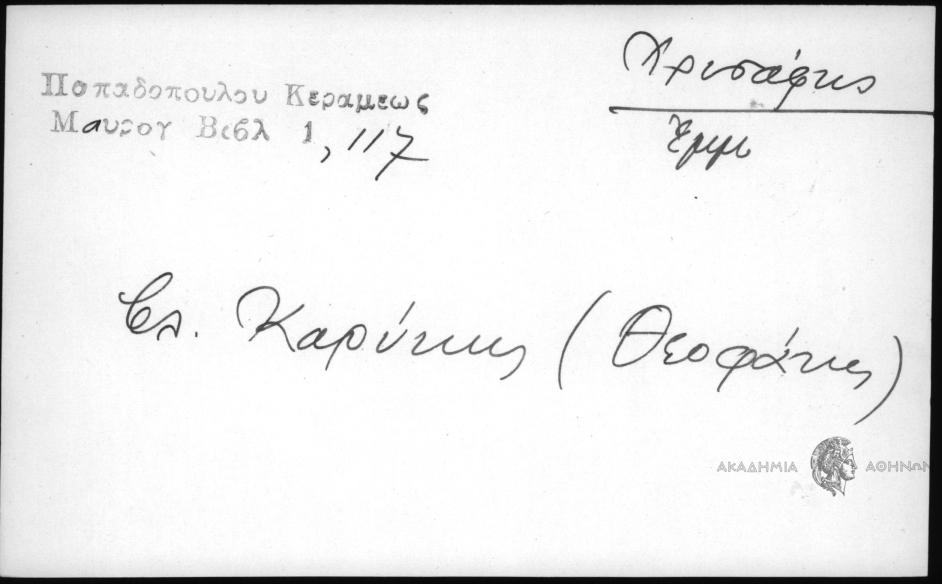 Παπαδοπουλου Κεραμεως
Μαυρογ Βιβλ 1, 117
Χρυσάφης
Βλ. Καρύκης (Θεοφάνης)
ΑΚΑΔΗΜΙΑ ΑΘΗΝΩΝ